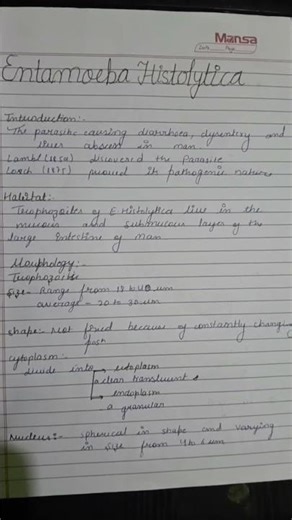 Mansa
Date Page
Entamoeba Histolytica
Introduction:-
The parasite causing diarrhoea, dysentery and
liver abscess in man
Lambl (1859) discovered the Parasite
Losch (1875) proved its pathogenic nature
Habitat:-
Trophozoites of E. Histolytica live in the
mucous and submucous layer of the
large Intestine of man
Morphology:-
Trophozoite
Size- Range from 18 to 40 um
average - 20 to 30 um
shape:- Not fixed because of constantly changing
cytoplasm:-
Divide into → ectoplasm
clear translucent
→ endoplasm
a granular
Nucleus:- spherical in shape and varying
in size from 4 to 6 um